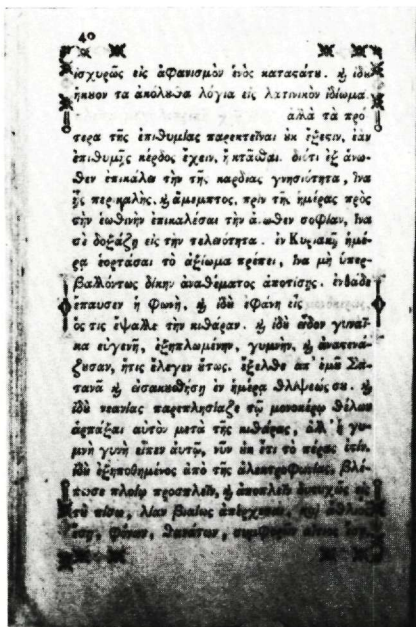 40
ἰσχυρῶς εἰς ἀφανισμὸν ἑνὸς καταςάτου. ϗ ἰδοὺ
ἤκουον τα ἀκόλουθα λόγια εἰς λατινικὸν ἰδίωμα.
ἀλλὰ τὰ πρὸ
τερα τῆς ἐπιθυμίας παρεκτεῖναι οὐκ ἔξεςιν, ἐὰν
ἐπιθυμῇς κέρδος ἔχειν, ἢ κτᾶσθαι. διότι ἐξ ἄνω-
θεν ἐπικαλοῦ τὴν τῆς καρδίας γνησιότητα, ἵνα
ᾖς περικαλὴς, ϗ ἄμεμπτος, πρὶν τῆς ἡμέρας πρὸς
τὴν ἑωθινὴν ἐπικαλέσαι τὴν ἄνωθεν σοφίαν, ἵνα
σὲ δοξάζῃ εἰς τὴν τελειότητα. ἐν Κυριακῇ ἡμέ-
ρᾳ ἑορτάσαι τὸ ἀξίωμα πρέπει, ἵνα μὴ ὑπερ-
βαλλόντως δίκην ἀναθέματος ἀποτίσῃς. ἐνθάδε
ἔπαυσεν ἡ φωνὴ, ϗ ἰδοὺ ἐφάνη εἷς
ὅς τις ἔψαλλε τὴν κιθάραν. ϗ ἰδοὺ εἶδον γυναῖ-
κα εὐγενῆ, ἐξηπλωμένην, γυμνὴν, ϗ ἀναςενά-
ζουσαν, ἥτις ἔλεγεν οὕτως. ἔξελθε ἀπ' ἐμοῦ Σα-
τανᾶ ϗ εἰσακουσθήσῃ ἐν ἡμέρᾳ θλίψεώς σου. ϗ
ἰδοὺ νεανίας παρεπλησίαζε τῷ μονοκέρῳ θέλων
ἁρπάξαι αὐτὸν μετὰ τῆς κιθάρας, ἀλλ' ἡ γυ-
μνὴ γυνὴ εἶπεν αὐτῷ, νῦν οὐκ ἔτι τὸ πέρας ἐςίν.
ἰδοὺ ἐξηποθημένος ἀπὸ τῆς ἀλεκτροφωνίας, βλέ-
πωσε πλοίῳ προσπλεῖν, ϗ ἀποπλεῖν εἰς
τὸ πίσω, λίαν βιαίως ἀπέρχεται,
φόνων, θανάτων,